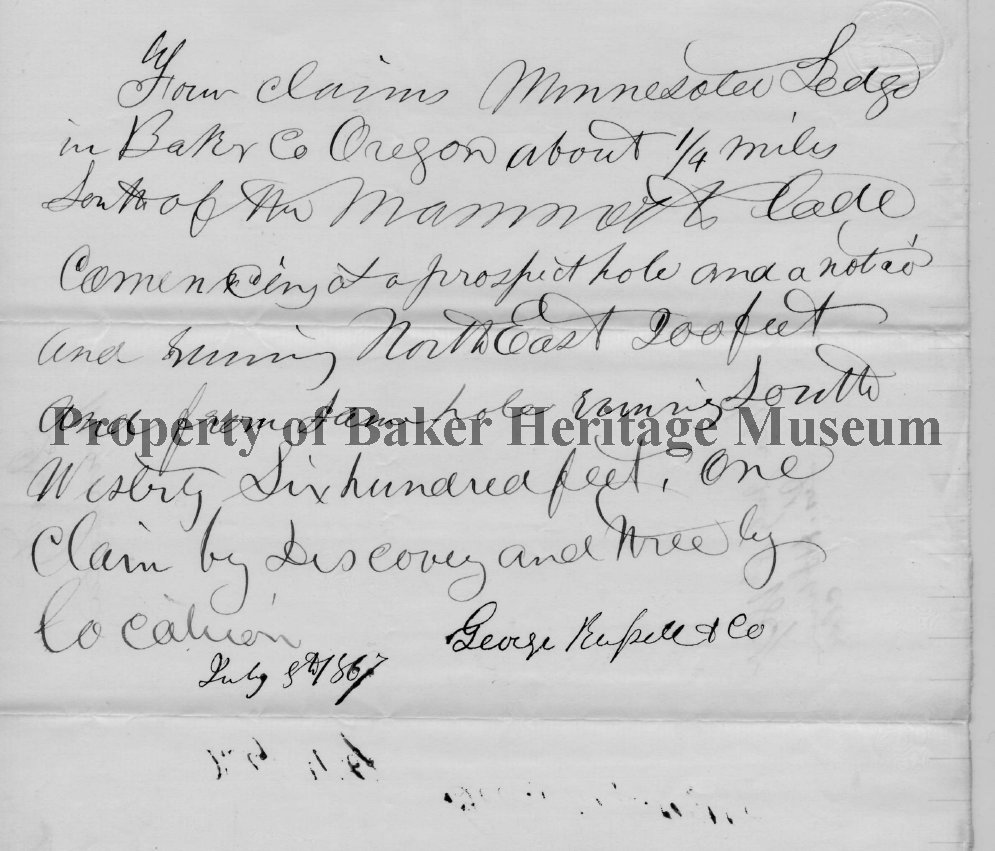 Four claims Minnesota Ledge
in Baker Co Oregon about 1/4 miles
South of the Mammoth Lode
Comencing at a prospect hole and a notice
and runing North East 200 feet
and from same hole runing South
Westerly Six hundred feet, One
Claim by Discovery and three by
Location
George Russell & Co
July 8th 1867
Property of Baker Heritage Museum